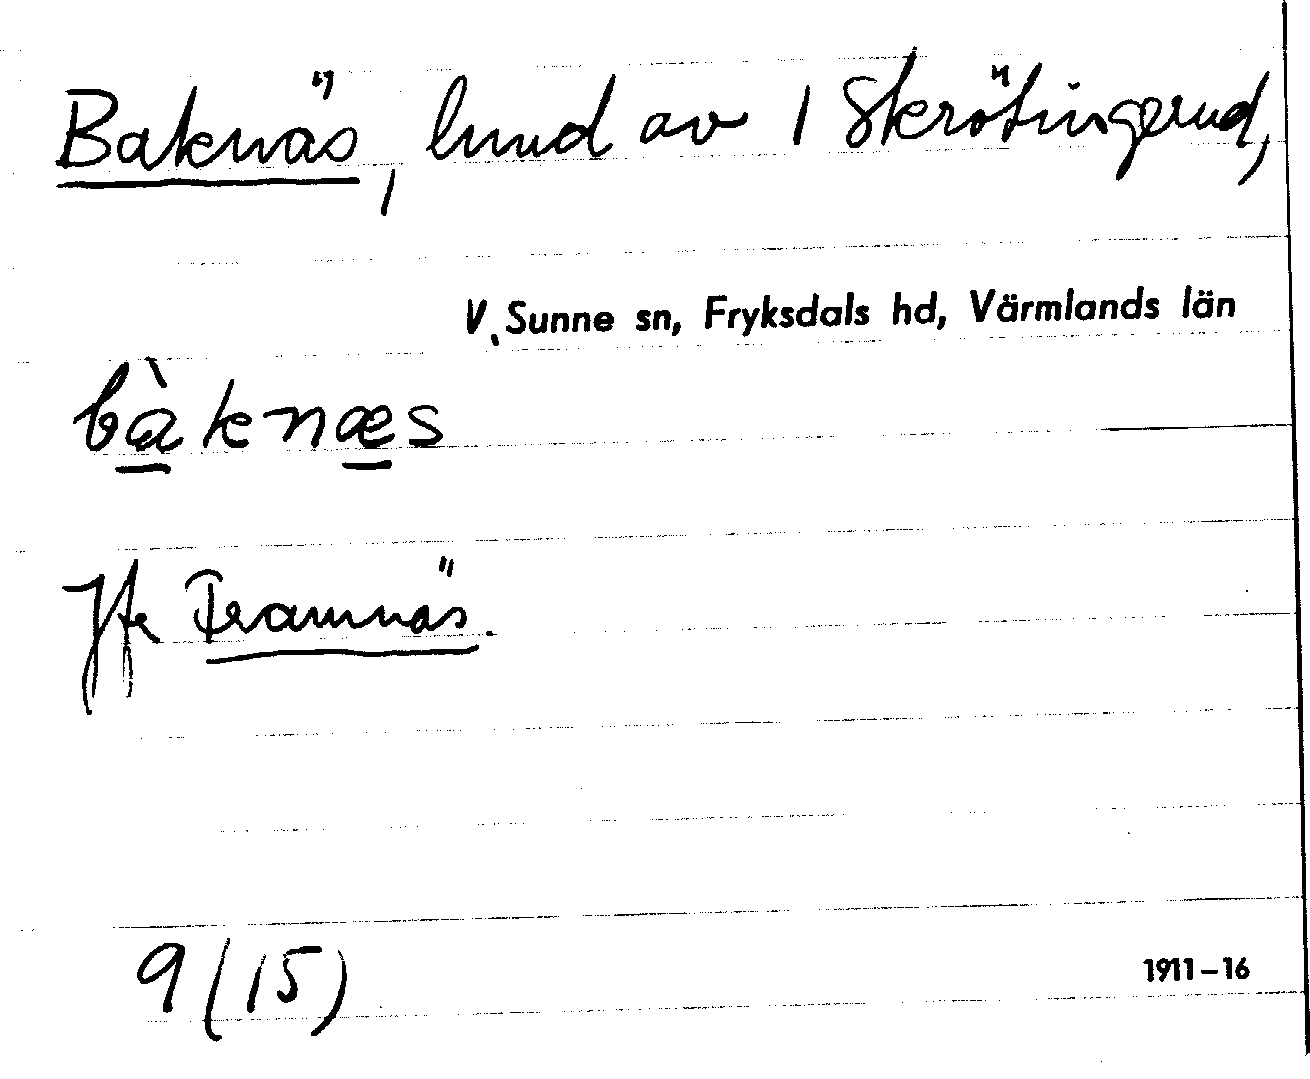 Baknäs, lund av 1 Skrötingerud,
V. Sunne sn, Fryksdals hd, Värmlands län
bàknæs
Jfr Framnäs.
9 (15)
1911–16